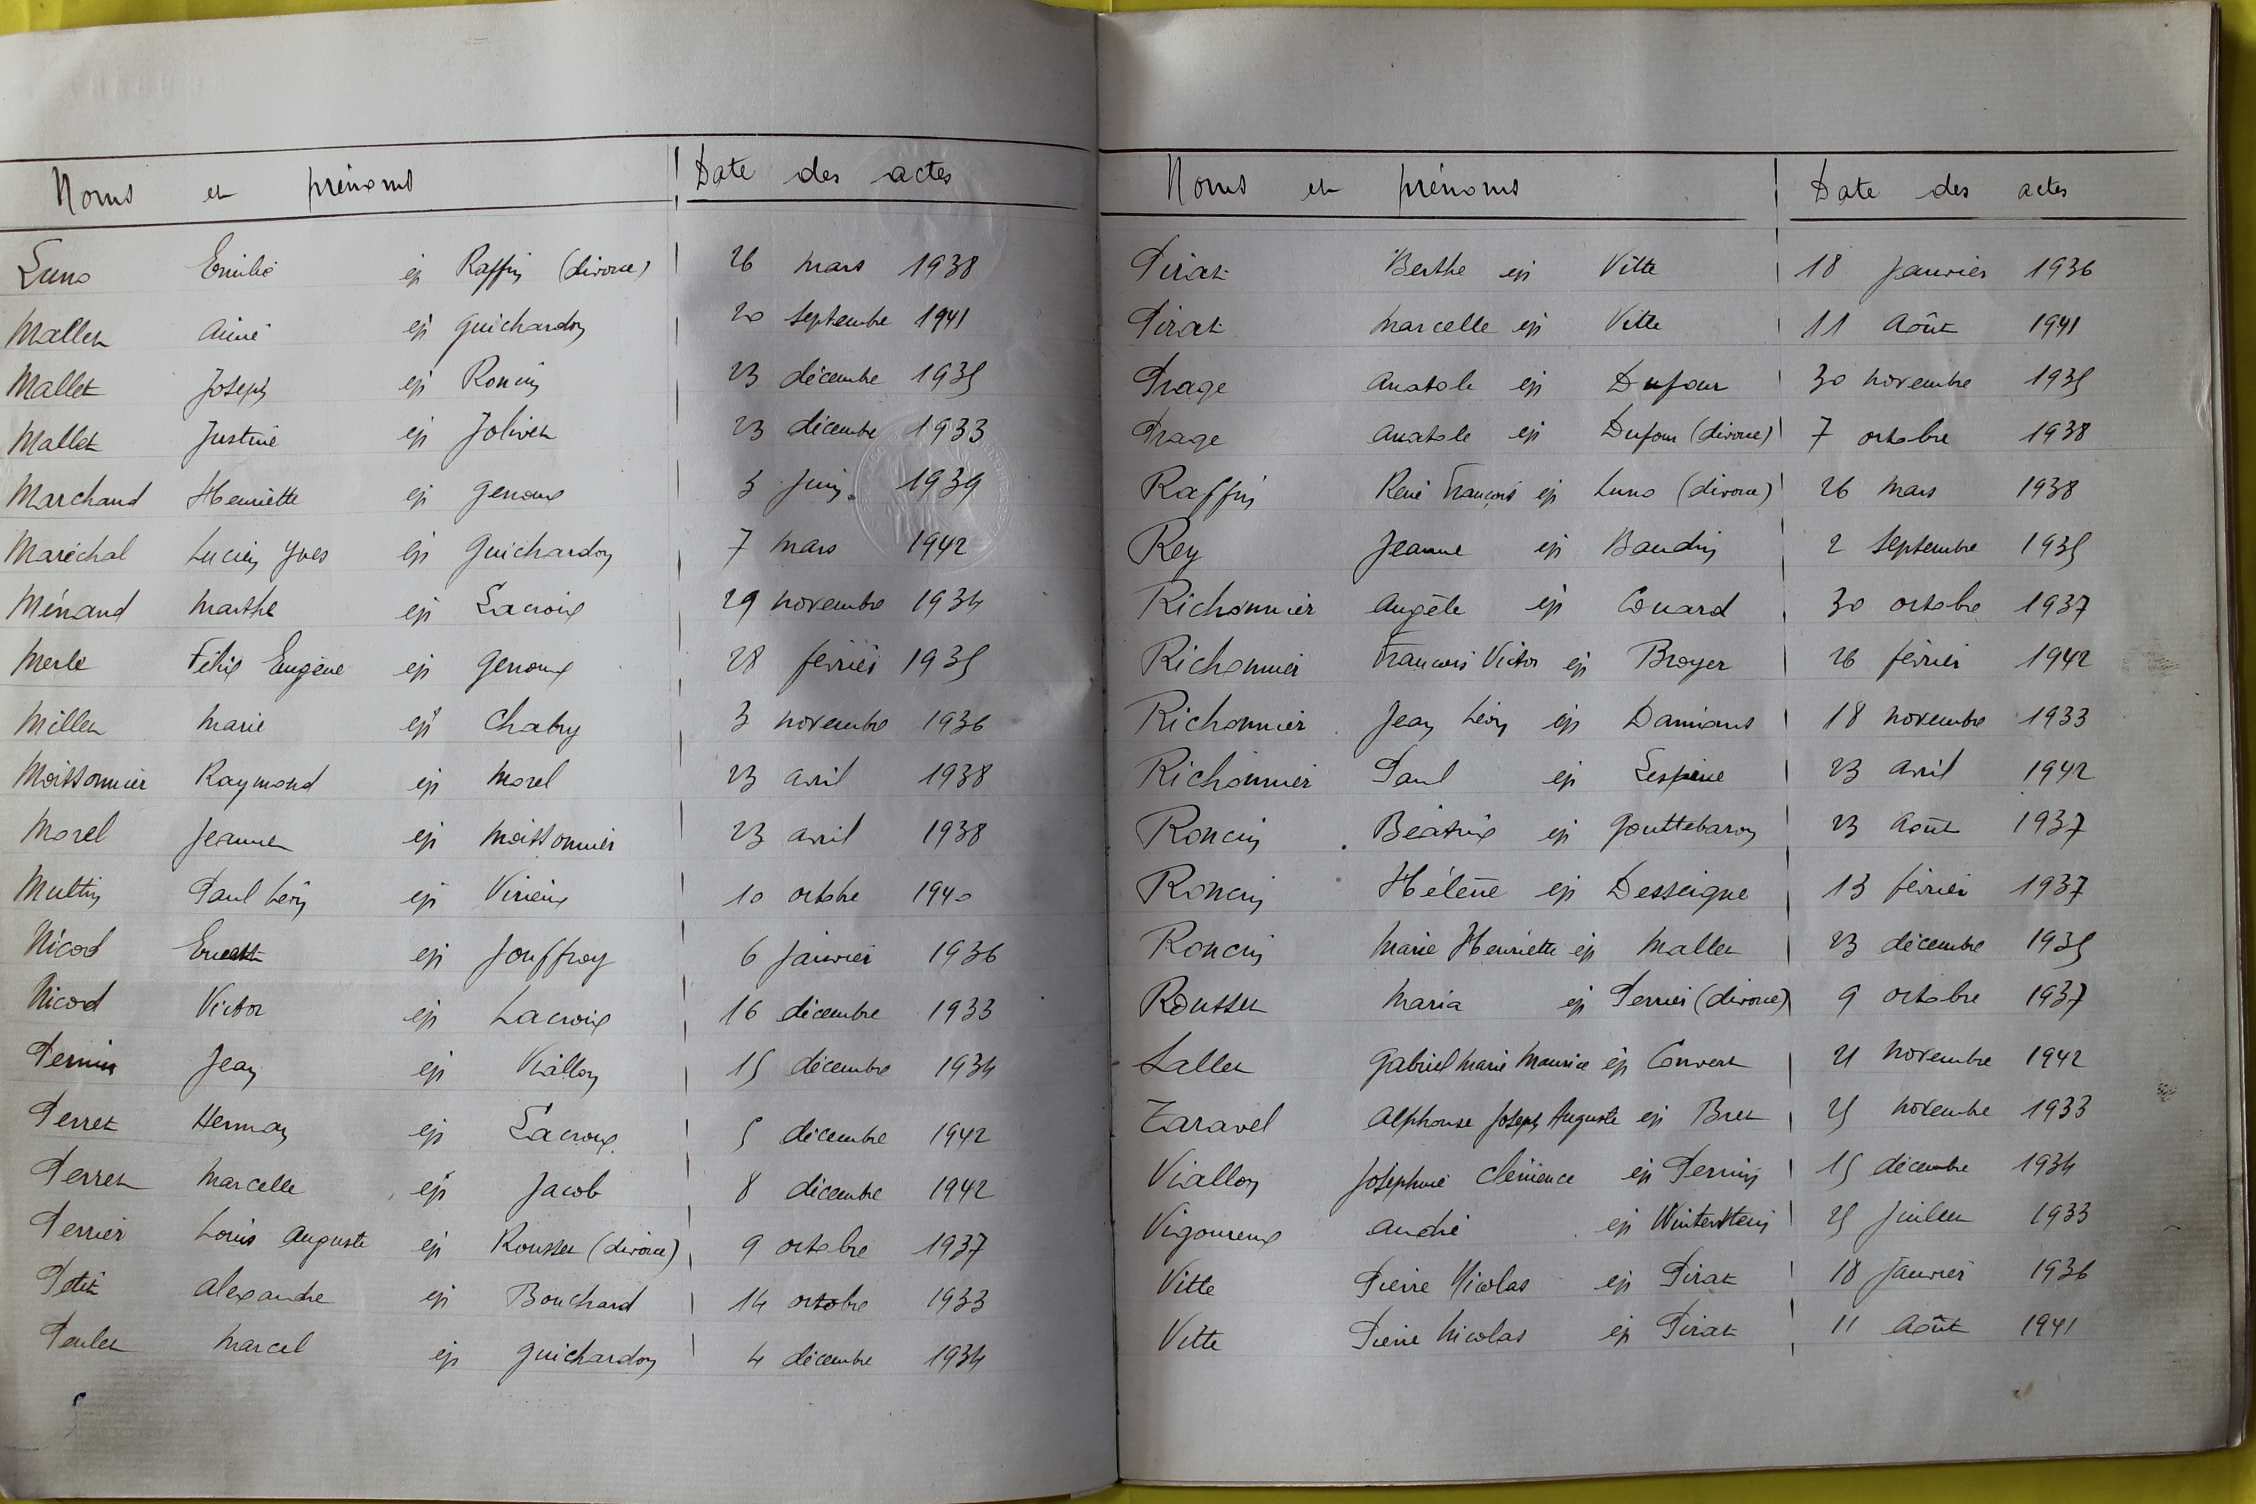 Noms et prénoms Date des actes
Luno Emilie ép Raffin (divorce) 26 mars 1938
Mallet Aimé ép Guichardon 20 septembre 1941
Mallet Joseph ép Roncin 23 décembre 1935
Mallet Justine ép Jolivet 23 décembre 1933
Marchand Henriette ép Genoux 3 Juin 1939
Maréchal Lucien Yves ép Guichardon 7 mars 1942
Ménand Marthe ép Lacroix 29 novembre 1934
Merle Félix Eugène ép Genoux 28 février 1935
Millet Marie ép Chatry 3 novembre 1936
Moissonnier Raymond ép Morel 23 avril 1938
Morel Jeanne ép Moissonnier 23 avril 1938
Multin Paul Léon ép Virieux 10 octobre 1940
Nicod Ernest ép Jouffroy 6 Janvier 1936
Nicod Victor ép Lacroix 16 décembre 1933
Pernin Jean ép Viallon 15 décembre 1934
Perret Herman ép Lacroix 5 décembre 1942
Perret Marcelle ép Jacob 8 décembre 1942
Perrier Louis Auguste ép Rousset (divorce) 9 octobre 1937
Petit Alexandre ép Bouchard 14 octobre 1933
Poulet Marcel ép Guichardon 4 décembre 1934
Noms et prénoms Date des actes
Pirat Berthe ép Vitte 18 Janvier 1936
Pirat Marcelle ép Vitte 11 Août 1941
Prage Anatole ép Dufour 30 novembre 1935
Prage Anatole ép Dufour (divorce) 7 octobre 1938
Raffin René François ép Luno (divorce) 26 mars 1938
Rey Jeanne ép Baudin 2 septembre 1935
Richonnier Angèle ép Couard 30 octobre 1937
Richonnier François Victor ép Broyer 26 février 1942
Richonnier Jean Léon ép Damians 18 novembre 1933
Richonnier Paul ép Lespine 23 avril 1942
Roncin Béatrix ép Gouttebaron 23 Août 1937
Roncin Hélène ép Desseigne 13 février 1937
Roncin Marie Henriette ép Mallet 23 décembre 1935
Rousset Maria ép Perrier (divorce) 9 octobre 1937
Sallet Gabriel Marie Maurice ép Convert 21 novembre 1942
Taravel Alphonse Joseph Auguste ép Bret 25 novembre 1933
Viallon Joséphine Clémence ép Pernin 15 décembre 1934
Vigoureux André ép Winterstein 25 Juillet 1933
Vitte Pierre Nicolas ép Pirat 18 Janvier 1936
Vitte Pierre Nicolas ép Pirat 11 Août 1941